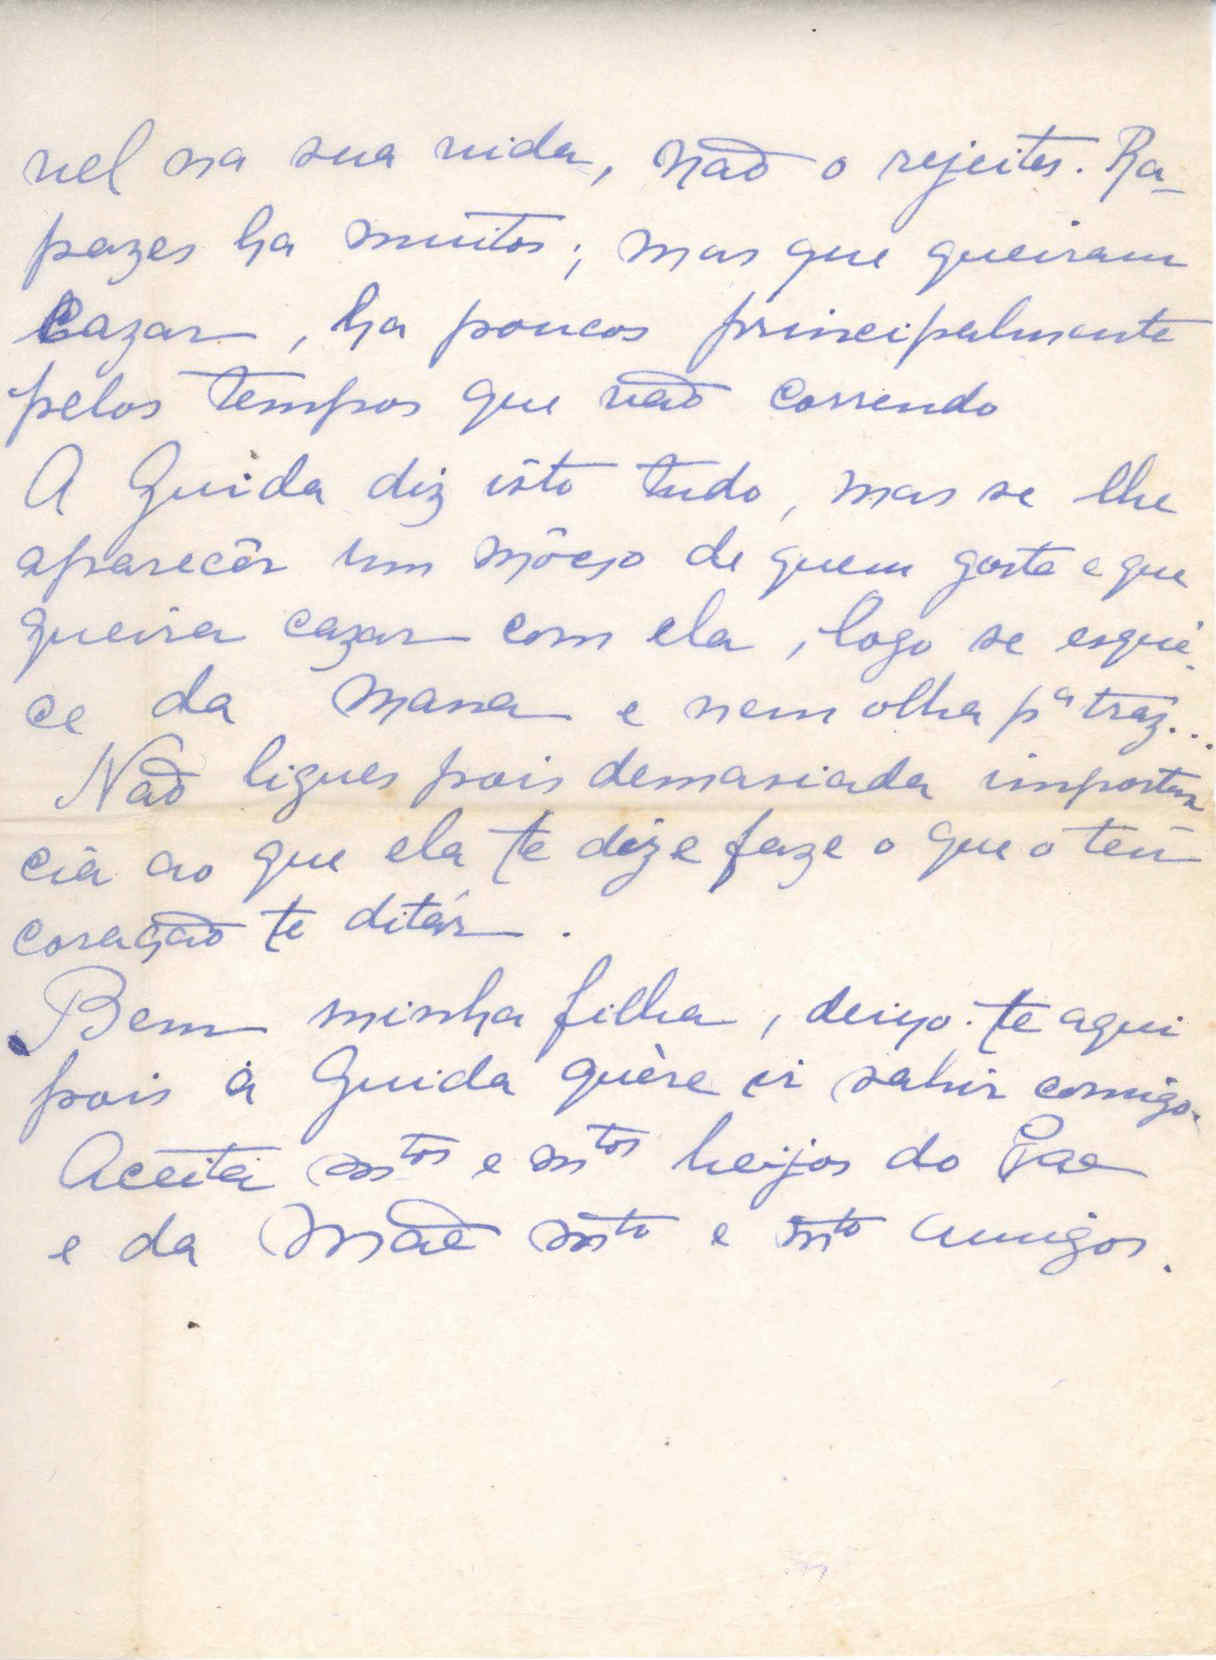 vel na sua vida, não o rejeites. Ra-
pazes ha muitos; mas que queiram
Cazar, ha poucos principalmente
pelos tempos que vão correndo
A Guida diz isto tudo, mas se lhe
aparecêr um môço de quem goste e que
queira cazar com ela, logo se esqué-
ce da mana e nem olha pª tráz...
Não ligues pois demasiada importan
cia ao que ela te diz e faze o que o teu
coração te ditár.
Bem minha filha, deixo-te aqui
pois a Guida quère ir sahir comigo.
Aceita mtos e mtos beijos do Pae
e da Mãe mto e mto amigos.